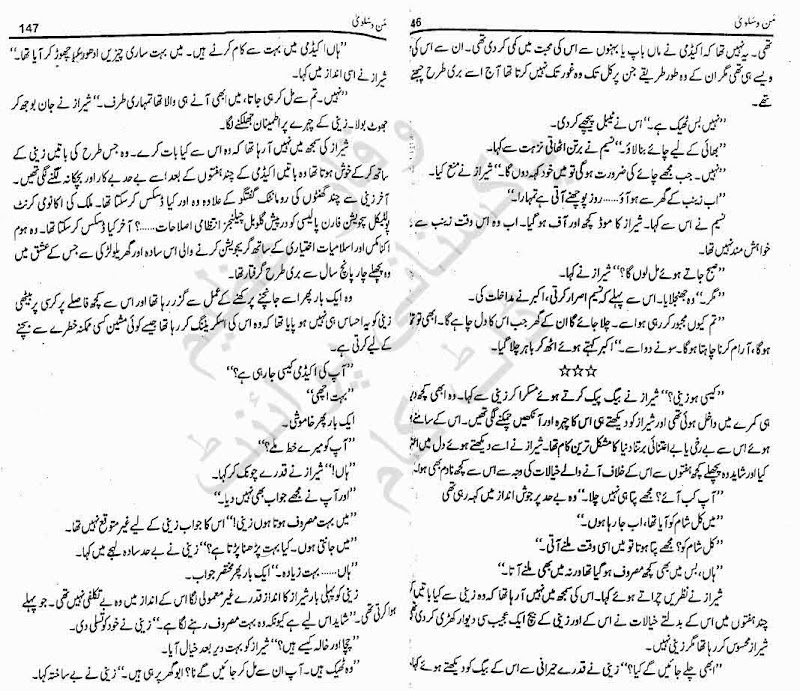 46
من و سلویٰ
تھی۔ یہ نہیں تھا کہ اکیڈمی نے ماں باپ یا بہنوں سے اس کی محبت میں کمی کر دی تھی۔ ان سے اس کی
ویسے ہی تھی مگر ان کے وہ طور طریقے جن پر کل تک وہ غور تک نہیں کرتا تھا آج اسے بری طرح چبھنے
تھے۔
"نہیں بس ٹھیک ہے۔" اس نے ٹیبل پیچھے کر دی۔
"بھائی کے لیے چائے بنا لاؤ۔" نسیم نے برتن اٹھاتی نزہت سے کہا۔
"نہیں۔ جب مجھے چائے کی ضرورت ہو گی تو میں خود کہہ دوں گا۔" شیراز نے منع کیا۔
"اب زینب کے گھر سے ہو آؤ...... روز پوچھنے آتی ہے تمہارا۔"
نسیم نے اس سے کہا۔ شیراز کا موڈ کچھ اور آف ہو گیا۔ اب وہ اس وقت زینب سے
خواہش مند نہیں تھا۔
"صبح جاتے ہوئے مل لوں گا؟" شیراز نے کہا۔
"مگر۔" وہ جھنجلایا۔ اس سے پہلے کہ نسیم اصرار کرتی، اکبر نے مداخلت کی۔
"تم کیوں مجبور کر رہی ہو اسے۔ چلا جائے گا ان کے گھر جب اس کا دل چاہے گا۔ ابھی تو تھکا
ہو گا، آرام کرنا چاہتا ہو گا۔ سونے دو اسے۔" اکبر کہتے ہوئے اٹھ کر باہر چلا گیا۔
☆☆☆
"کیسی ہو زینی؟" شیراز نے بیگ پیک کرتے ہوئے مسکرا کر زینی سے کہا۔ وہ ابھی کچھ دیر
ہی کمرے میں داخل ہوئی تھی اور شیراز کو دیکھتے ہی اس کا چہرہ اور آنکھیں چمکنے لگی تھیں۔ اس کے سامنے
ہوئے اس سے بے رخی یا بے اعتنائی برتنا دنیا کا مشکل ترین کام تھا۔ شیراز نے اسے دیکھتے ہوئے دل میں
کیا اور شاید وہ پچھلے کچھ ہفتوں سے اس کے خلاف آنے والے خیالات کی وجہ سے اس سے کچھ نادم بھی ہوا۔
"آپ کب آئے؟ مجھے پتا ہی نہیں چلا۔" وہ بے حد پرجوش انداز میں کہہ رہی تھی
"میں کل شام کو آیا تھا، اب جا رہا ہوں۔"
"کل شام کو؟ مجھے پتا ہوتا تو میں اسی وقت ملنے آتی۔"
"ہاں، بس میں بھی کچھ مصروف ہو گیا تھا ورنہ میں بھی ملنے آتا۔"
شیراز نے نظریں چراتے ہوئے کہا۔ اس کی سمجھ میں نہیں آ رہا تھا کہ وہ زینی سے کیا باتیں
چند ہفتوں میں اس کے بدلتے خیالات نے اس کے اور زینی کے بیچ ایک عجیب سی دیوار کھڑی کر دی تھی
شیراز محسوس کر رہا تھا مگر زینی نہیں۔
"ابھی چلے جائیں گے کیا؟" زینی نے قدرے حیرانی سے اس کے بیگ کو دیکھتے ہوئے کہا
من و سلویٰ
147
"ہاں اکیڈمی میں بہت سے کام کرنے ہیں۔ میں بہت ساری چیزیں ادھورے چھوڑ کر آیا تھا۔"
شیراز نے اسی انداز میں کہا۔
"نہیں۔ تم سے مل کر ہی جاتا، میں ابھی آنے ہی والا تھا تمہاری طرف۔" شیراز نے جان بوجھ کر
جھوٹ بولا۔ زینی کے چہرے پر اطمینان جھلکنے لگا۔
شیراز کی سمجھ میں نہیں آ رہا تھا کہ وہ اس سے کیا بات کرے۔ وہ جس طرح کی باتیں زینی کے
ساتھ کر کے خوش ہوتا تھا وہ باتیں اکیڈمی کے چند ہفتوں کے بعد اسے بے حد بے کار اور بچکانہ لگنے لگی تھیں۔
آخر زینی سے چند گھنٹوں کی رومانٹک گفتگو کے علاوہ وہ اور کیا ڈسکس کر سکتا تھا۔ ملک کی اکانومی کرنٹ
پولیٹیکل سچویشن فارن پالیسی کو درپیش گلوبل چیلنجز انتظامی اصلاحات......؟ آخر کیا ڈسکس کر سکتا تھا۔ وہ ہوم
اکنامکس اور اسلامیات اختیاری کے ساتھ گریجویشن کرنے والی اس سادہ اور گھریلو لڑکی سے جس کے عشق میں
وہ پچھلے چار پانچ سال سے بری طرح گرفتار تھا۔
وہ ایک بار پھر اسے جانچنے پرکھنے کے عمل سے گزر رہا تھا اور اس سے کچھ فاصلے پر کرسی پر بیٹھی
زینی کو یہ احساس ہی نہیں ہو پایا تھا کہ وہ اس کی اسکریننگ کر رہا تھا جیسے کوئی مشین کسی ممکنہ خطرے سے بچنے
کے لیے کرتی ہے۔
"آپ کی اکیڈمی کیسی جا رہی ہے؟"
"بہت اچھی"
ایک بار پھر خاموشی۔
"آپ کو میرے خط ملے؟"
"ہاں!" شیراز نے قدرے چونک کر کہا۔
"اور آپ نے مجھے جواب بھی نہیں دیا۔"
"میں بہت مصروف ہوتا ہوں زینی!" اس کا جواب زینی کے لیے غیر متوقع نہیں تھا۔
"میں جانتی ہوں۔ کیا بہت پڑھنا پڑتا ہے؟" زینی نے بے حد سادہ لہجے میں کہا۔
"ہاں...... بہت زیادہ۔" ایک بار پھر مختصر جواب۔
زینی کو پہلی بار شیراز کا انداز قدرے غیر معمولی لگا اس کے انداز میں وہ بے تکلفی نہیں تھی۔ جو پہلے
ہوا کرتی تھی۔ "شاید اس لیے ہے کیونکہ وہ بہت مصروف رہنے لگا ہے۔" زینی نے خود کو تسلی دی۔
"چچا اور خالہ کیسے ہیں؟" شیراز کو بہت دیر بعد خیال آیا۔
"وہ ٹھیک ہیں۔ آپ ان سے مل کر جائیں گے نا؟ ابو گھر پر ہی ہیں۔" زینی نے بے ساختہ کہا۔